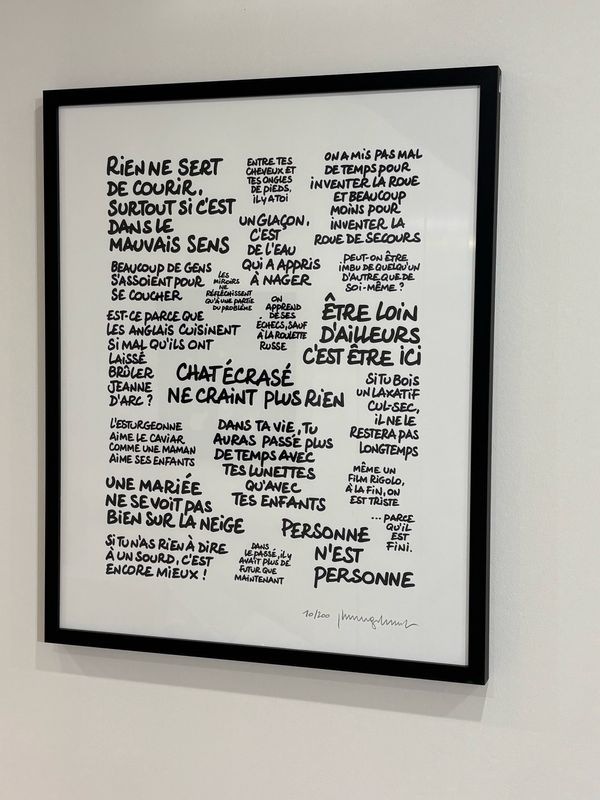 RIEN NE SERT
DE COURIR,
SURTOUT SI C'EST
DANS LE
MAUVAIS SENS
ENTRE TES
CHEVEUX ET
TES ONGLES
DE PIEDS,
IL Y A TOI
ON A MIS PAS MAL
DE TEMPS POUR
INVENTER LA ROUE
ET BEAUCOUP
MOINS POUR
INVENTER LA
ROUE DE SECOURS
UN GLAÇON,
C'EST
DE L'EAU
QUI A APPRIS
À NAGER
BEAUCOUP DE GENS
S'ASSOIENT POUR
SE COUCHER
LES
MIROIRS
NE
RÉFLÉCHISSENT
QU'À UNE PARTIE
DU PROBLÈME
PEUT-ON ÊTRE
IMBU DE QUELQU'UN
D'AUTRE QUE DE
SOI-MÊME ?
EST-CE PARCE QUE
LES ANGLAIS CUISINENT
SI MAL QU'ILS ONT
LAISSÉ
BRÛLER
JEANNE
D'ARC ?
ON
APPREND
DE SES
ÉCHECS, SAUF
À LA ROULETTE
RUSSE
ÊTRE LOIN
D'AILLEURS
C'EST ÊTRE ICI
CHAT ÉCRASÉ
NE CRAINT PLUS RIEN
SI TU BOIS
UN LAXATIF
CUL-SEC,
IL NE LE
RESTERA PAS
LONGTEMPS
L'ESTURGEONNE
AIME LE CAVIAR
COMME UNE MAMAN
AIME SES ENFANTS
DANS TA VIE, TU
AURAS PASSÉ PLUS
DE TEMPS AVEC
TES LUNETTES
QU'AVEC
TES ENFANTS
MÊME UN
FILM RIGOLO,
À LA FIN, ON
EST TRISTE
... PARCE
QU'IL
EST
FINI.
UNE MARIÉE
NE SE VOIT PAS
BIEN SUR LA NEIGE
PERSONNE
N'EST
PERSONNE
SI TU N'AS RIEN À DIRE
À UN SOURD, C'EST
ENCORE MIEUX !
DANS
LE PASSÉ, IL Y
AVAIT PLUS DE
FUTUR QUE
MAINTENANT
10/200